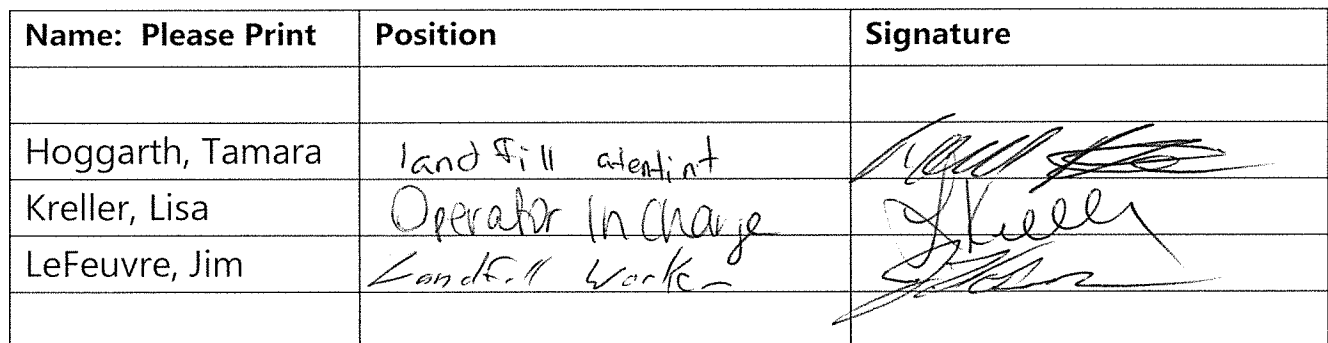 Name: Please Print Position Signature
Hoggarth, Tamara land fill atentint
Kreller, Lisa Operator In Charge L Kreller
LeFeuvre, Jim Landfill Worker